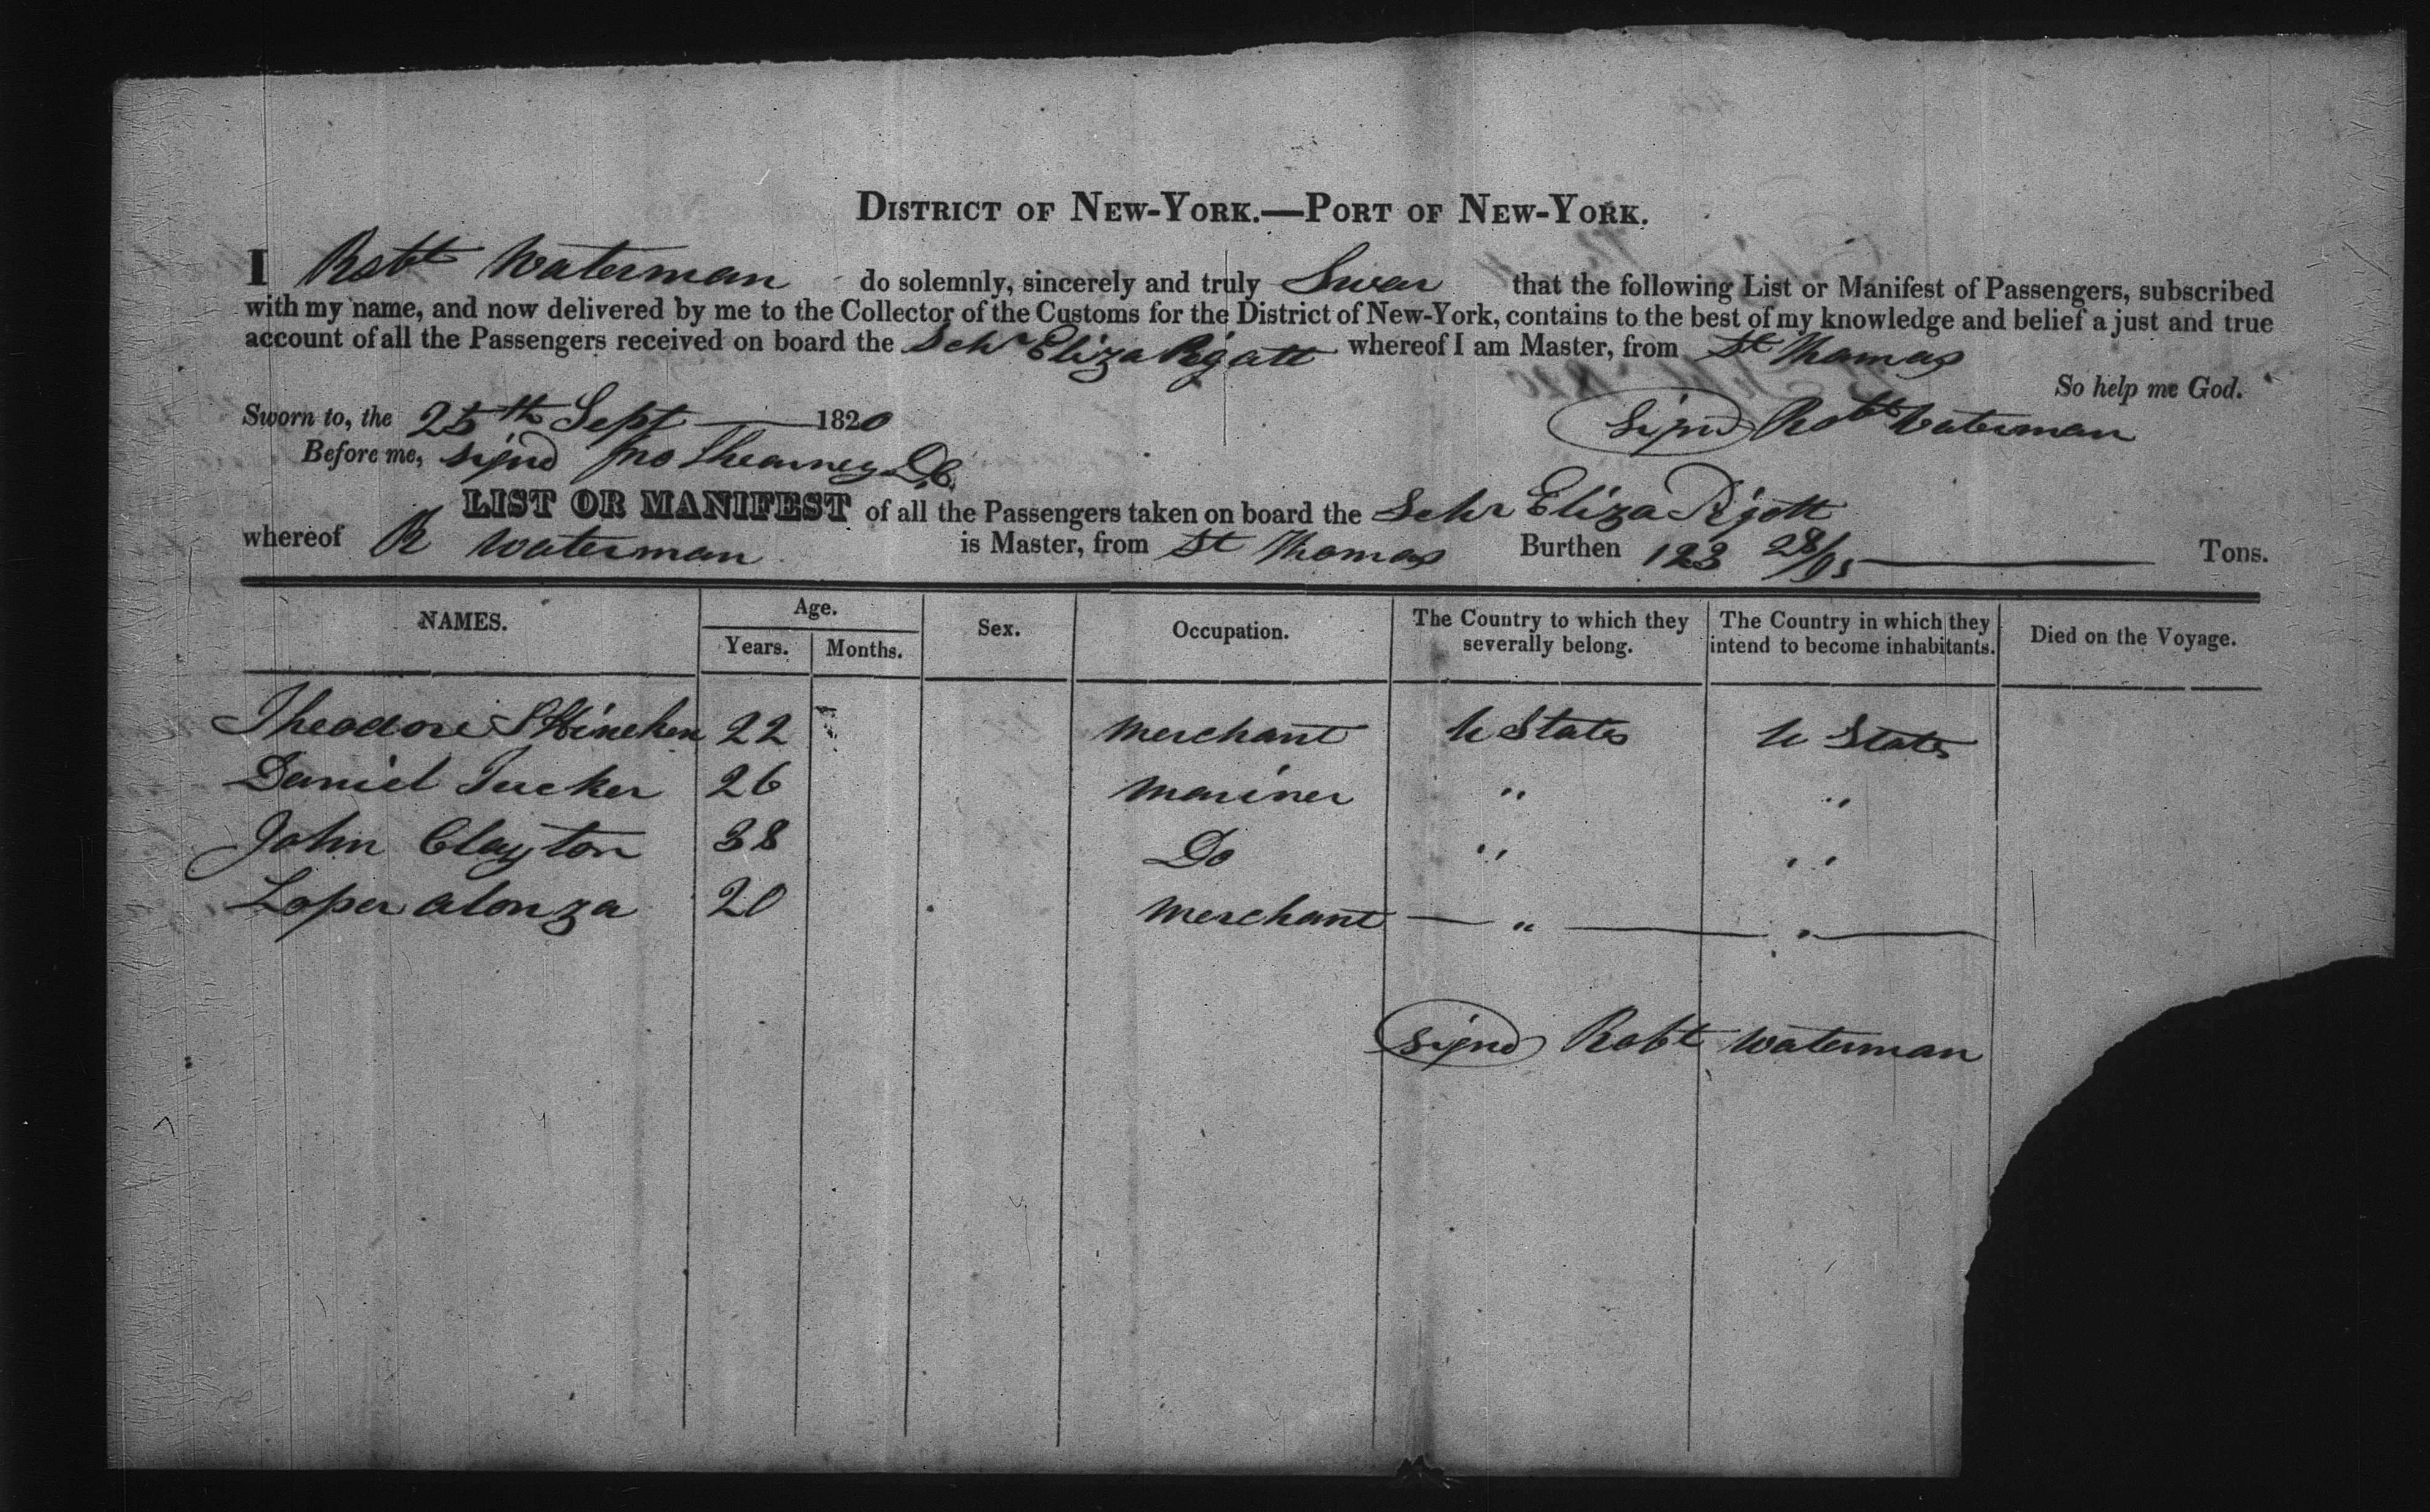 DISTRICT OF NEW-YORK.—PORT OF NEW-YORK.
I Robt Waterman do solemnly, sincerely and truly Swear that the following List or Manifest of Passengers, subscribed
with my name, and now delivered by me to the Collector of the Customs for the District of New-York, contains to the best of my knowledge and belief a just and true
account of all the Passengers received on board the Schr Eliza Pigott whereof I am Master, from St Thomas
So help me God.
Sworn to, the 25th Sept 1820 Signd Robt Waterman
Before me, signd Jno Shearney DC
LIST OR MANIFEST of all the Passengers taken on board the Schr Eliza Pigott
whereof R Waterman is Master, from St Thomas Burthen 123 28/95 Tons.
NAMES. Age. Years. Months. Sex. Occupation. The Country to which they severally belong. The Country in which they intend to become inhabitants. Died on the Voyage.
Theodore 22 merchant U States U States
Daniel Tucker 26 mariner " "
John Clayton 38 Do " "
Loper alonza 20 merchant — " — " —
signd Robt Waterman